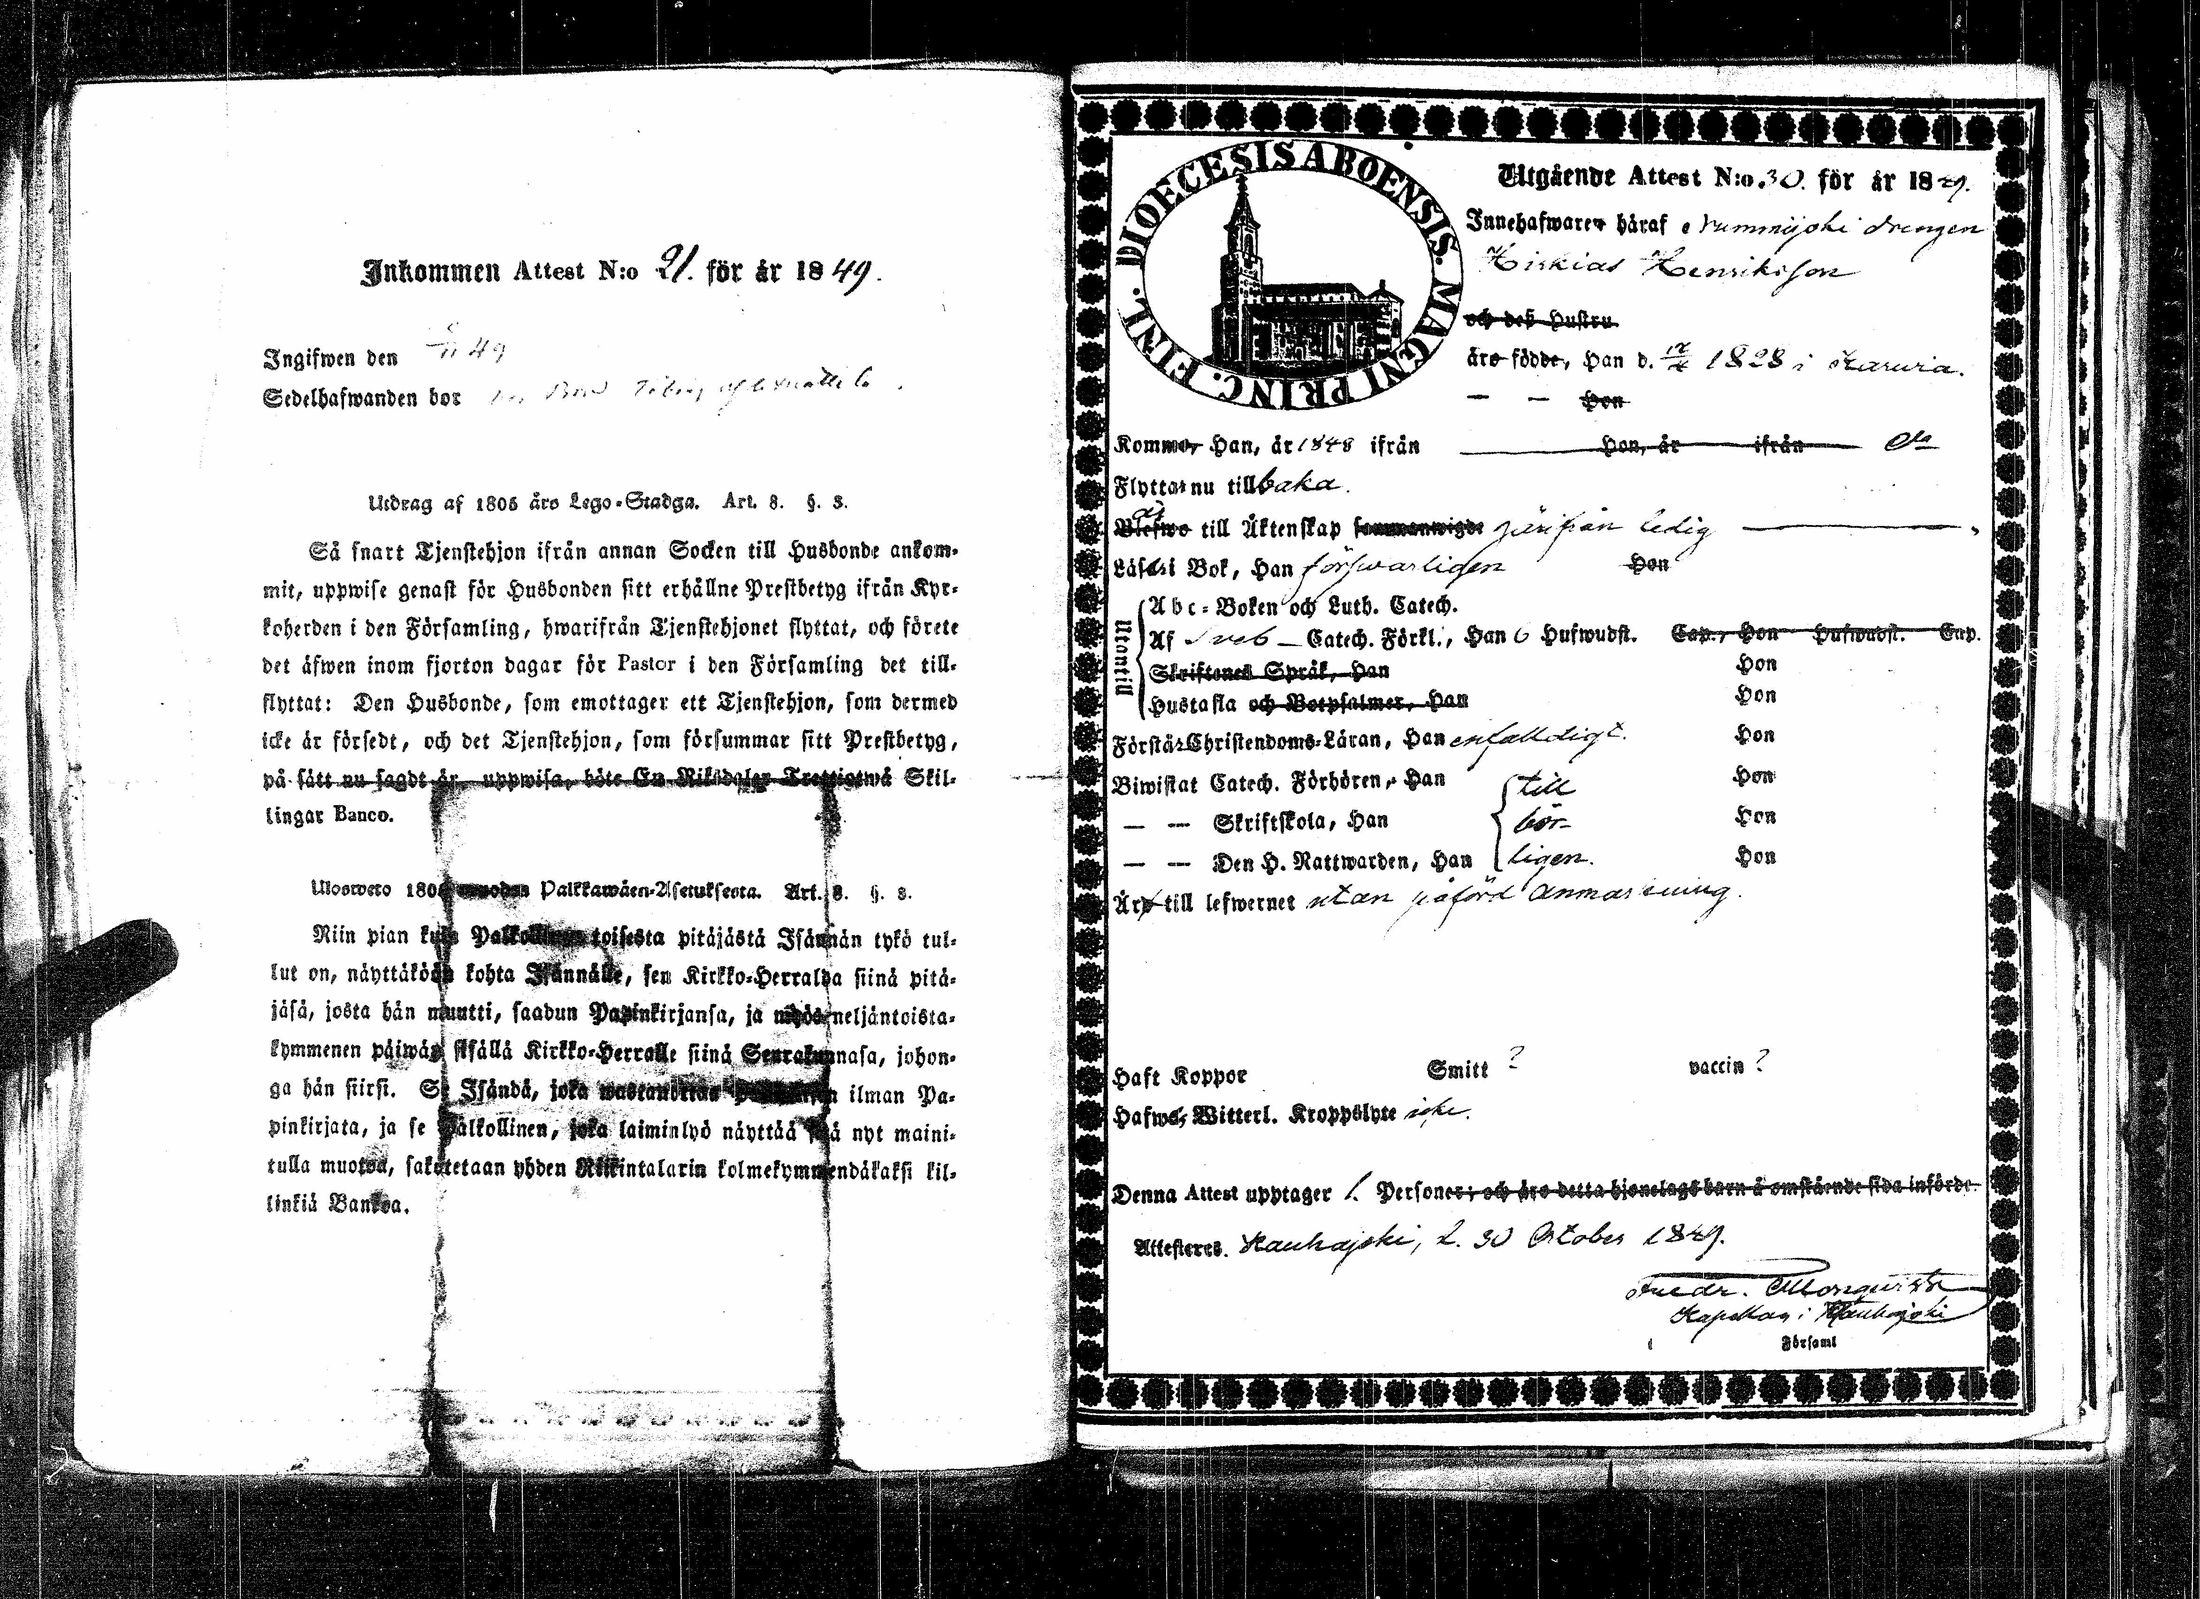 Inkommen Attest N:o 21. för år 1849.
Ingifwen den 49
Sedelhafwanden bor
Utdrag af 1805 års Lego-Stadga. Art. 8. §. 3.
Så snart Tjenstehjon ifrån annan Socken till Husbonde ankom-
mit, uppwise genast för Husbonden sitt erhållne Prestbetyg ifrån Kyr-
koherden i den Församling, hwarifrån Tjenstehjonet flyttat, och förete
det äfwen inom fjorton dagar för Pastor i den Församling det till-
flyttat: Den Husbonde, som emottager ett Tjenstehjon, som dermed
icke är försedt, och det Tjenstehjon, som försummar sitt Prestbetyg,
på sätt nu sagdt är, uppwisa, böte En Riksdaler Trettiotwå Skil-
lingar Banco.
Ulosweto 1805 wuoden Palkkawäen-Asetuksesta. Art. 8. §. 3.
Niin pian kuin Palkollinen toisesta pitäjästä Isännän tykö tul-
lut on, näyttäköön kohta Isännälle, sen Kirkko-Herralda siinä pitä-
jäsä, josta hän muutti, saadun Papinkirjansa, ja myös neljäntoista-
kymmenen päiwän sisällä Kirkko-Herralle siinä Seurakunnasa, johon-
ga hän siirsi. Se Isändä, joka wastanottaa ilman Pa-
pinkirjata, ja se Palkollinen, joka laiminlyö näyttää sitä nyt maini-
tulla muotoa, sakotetaan yhden Riikintalarin kolmekymmendäkaksi kil-
linkiä Bankoa.
DIOECESIS ABOENSIS. MAGNI PRINC. FINL.
Utgående Attest N:o 30. för år 1849.
Innehafwaren häraf drengen
Hiskias Henriksson
och deß Hustru
äro födde, Han d. 1828 i
— — Hon
Kommo, Han, år 1848 ifrån Hon, år ifrån
Flyttar nu tillbaka.
är
Blefwo till Äktenskap sammanwigde härifrån ledig
Läser i Bok, Han försvarligen Hon
Utantill
Abc-Boken och Luth. Catech.
Af Sveb— Catech. Förkl., Han 6 Hufwudst. Cap., Hon Hufwudst. Cap.
Skriftenes Språk, Han Hon
Hustafla och Botpsalmer, Han Hon
Förstår Christendoms-Läran, Han enfalldigt. Hon
Biwistat Catech. Förhören, Han till Hon
— — Skriftskola, Han bör- Hon
— — Den H. Nattwarden, Han ligen. Hon
Äro till lefwernet utan påförd anmärkning.
Haft Koppor Smitt ? vaccin ?
Hafwa, Witterl. Kroppslyte icke.
Denna Attest upptager 1. Personer; och äro detta hjonelags barn å omstående sida införde.
Attesteres. Kauhajoki, d. 30 October 1849.
Fredr.
Kapellan i Kauhajoki
Församl